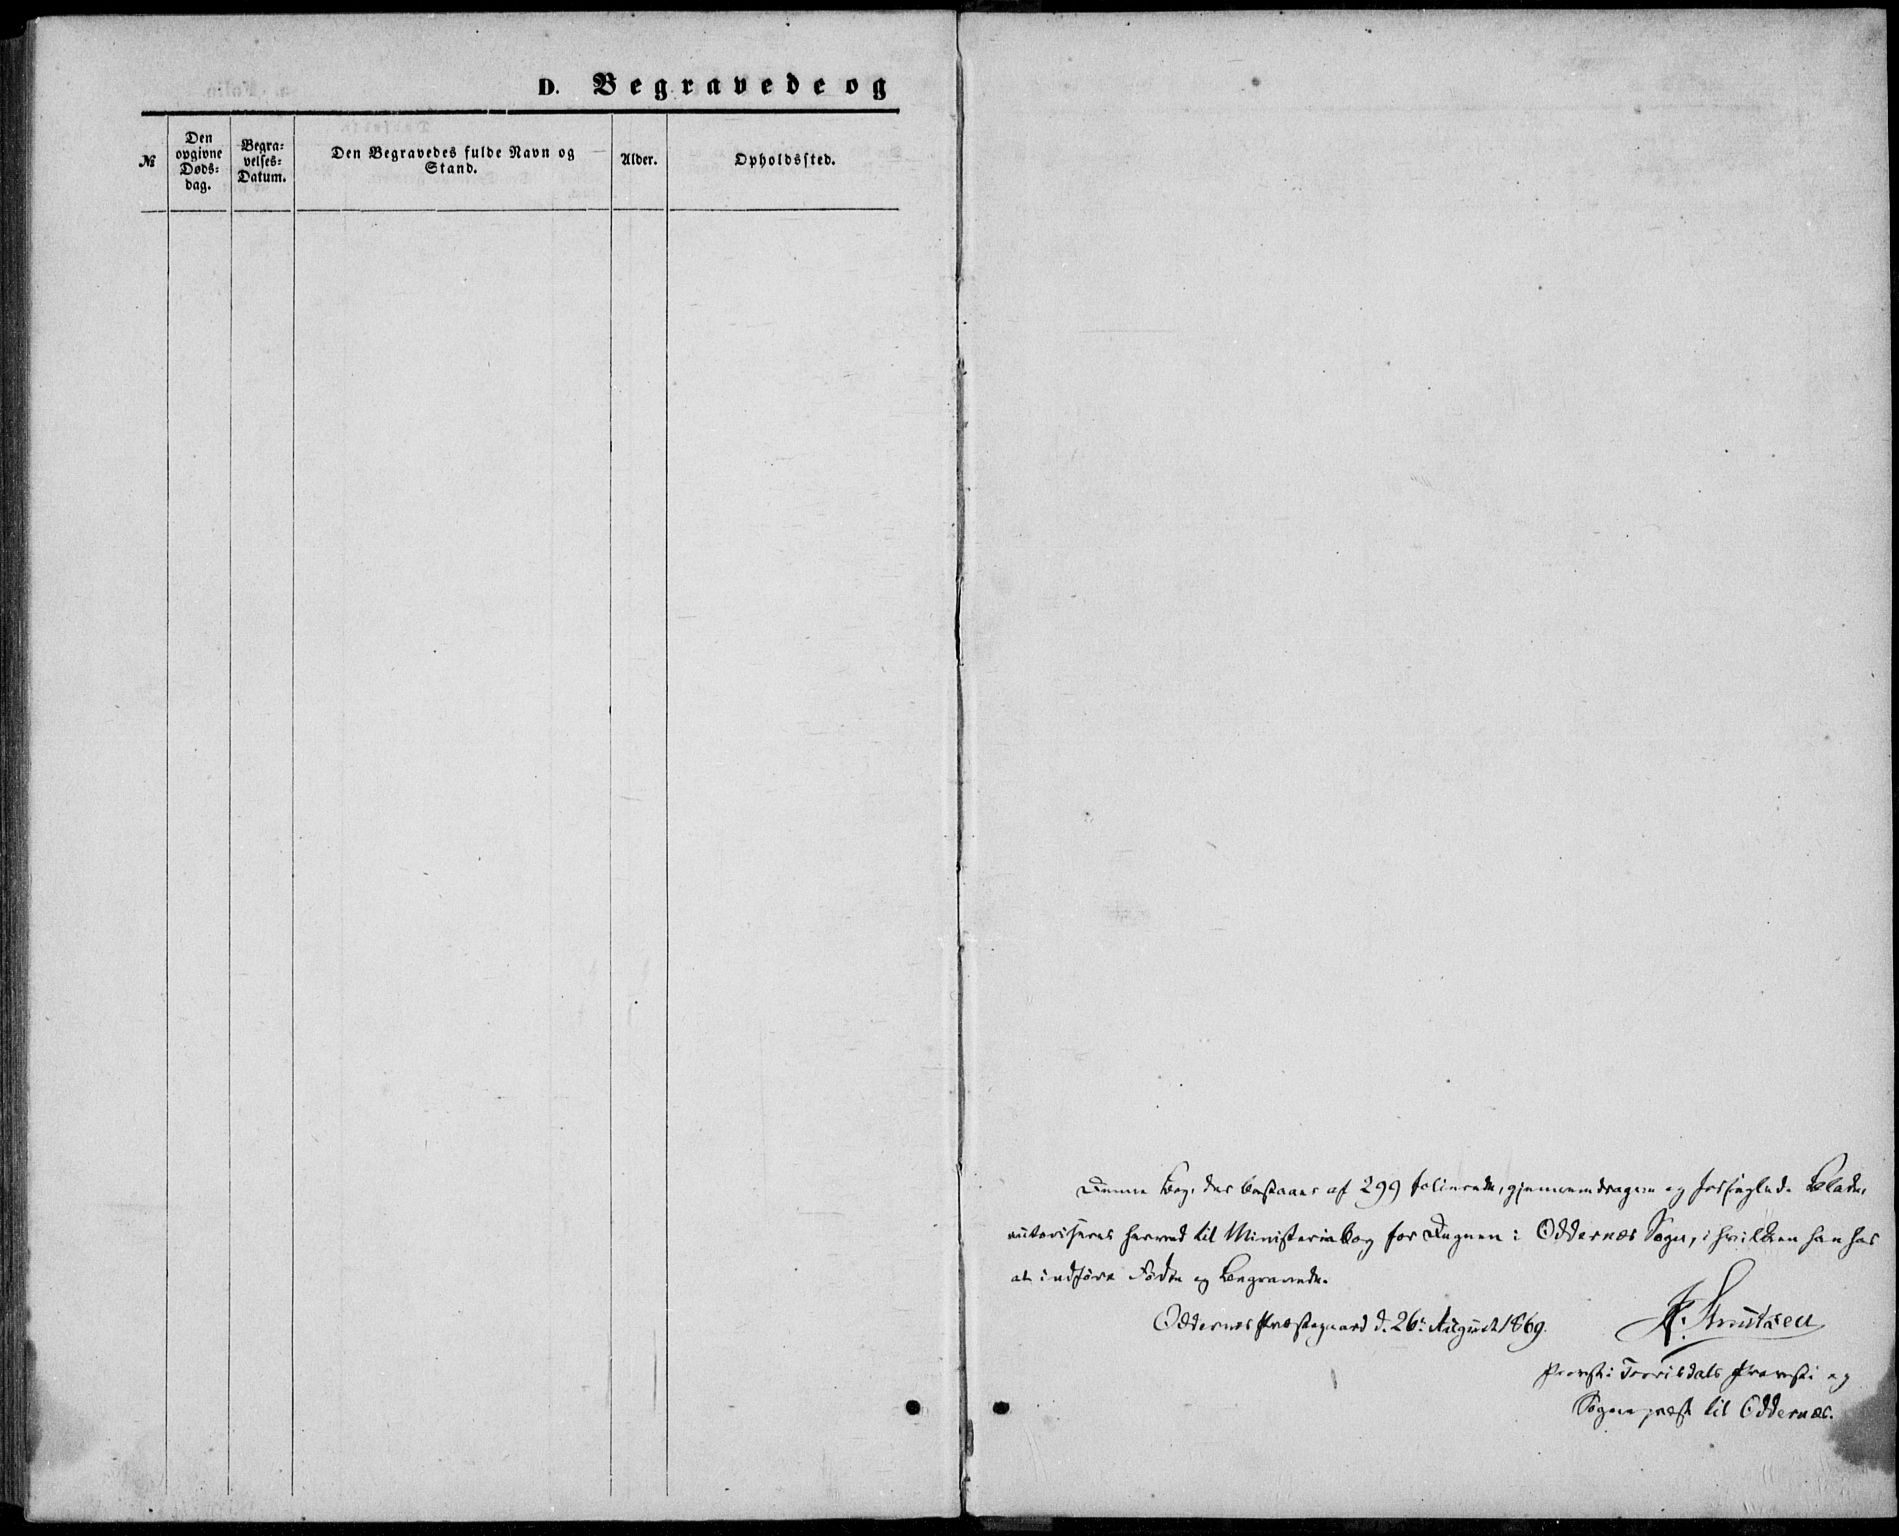 D. Begravede og
№
Den
opgivne
Døds-
dag.
Begra-
velses-
Datum.
Den Begravedes fulde Navn og
Stand.
Alder.
Opholdssted.
Denne Bog, der bestaaer af 299 folierede, gjennemdragne og forseglede Blade,
autoriseres herved til Ministerialbog for Degnen i Oddernæs Sogn, i hvilken han har
at indføre Fødte og Begravede.
Oddernæs Præstegaard d. 26de August 1869.
Knutzen
Provst i Torrisdals Provsti og
Sogne præst til Oddernæs.